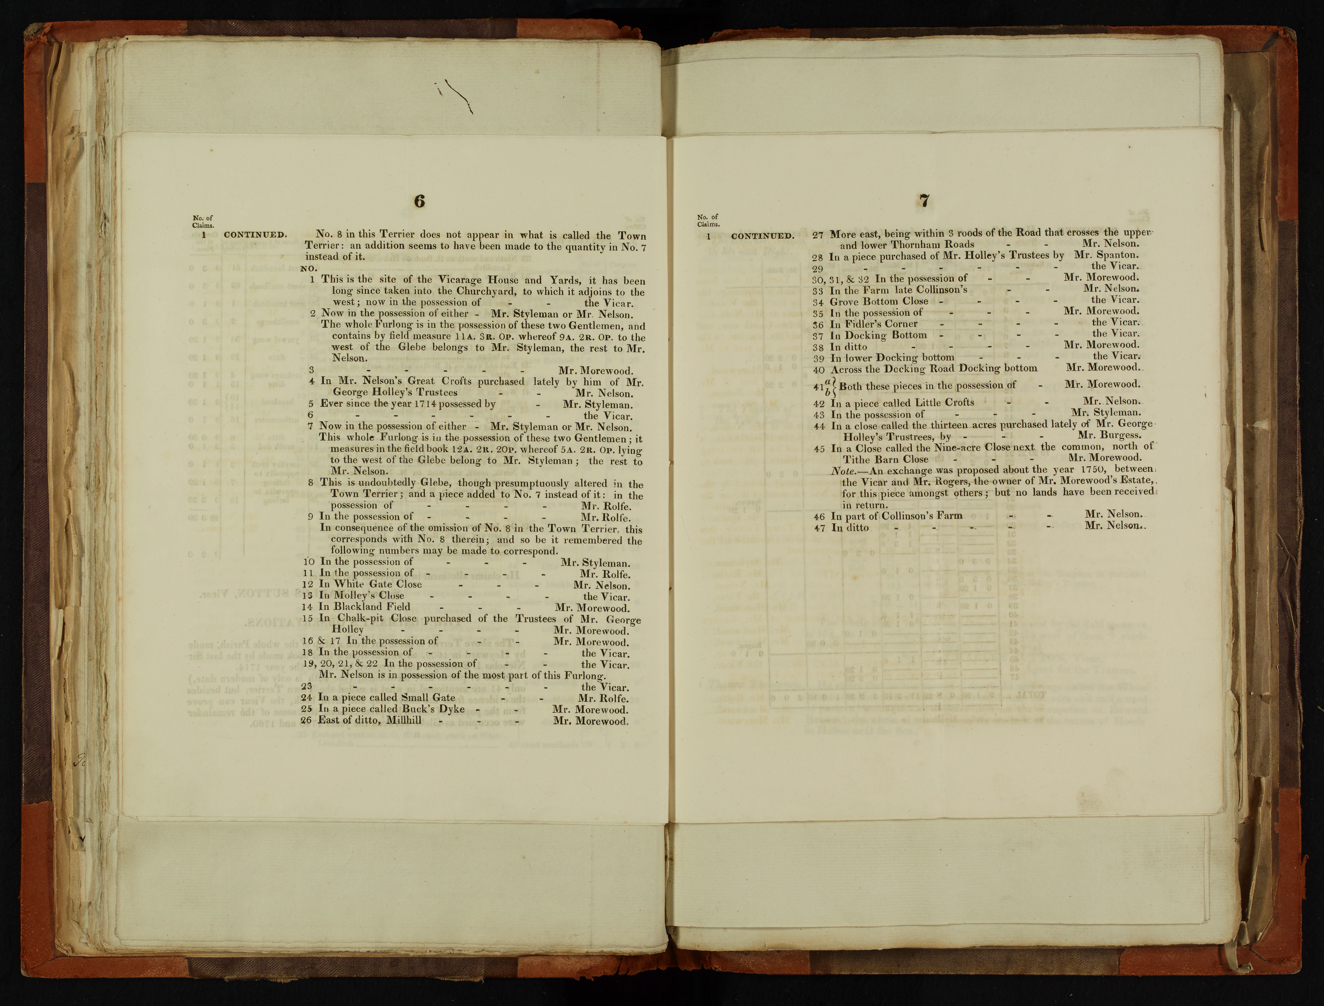 6
No. of
Claims.
1 CONTINUED. No. 8 in this Terrier does not appear in what is called the Town
Terrier: an addition seems to have been made to the quantity in No. 7
instead of it.
NO.
1 This is the site of the Vicarage House and Yards, it has been
long since taken into the Churchyard, to which it adjoins to the
west; now in the possession of - - the Vicar.
2 Now in the possession of either - Mr. Styleman or Mr. Nelson.
The whole Furlong is in the possession of these two Gentlemen, and
contains by field measure 11A. 3R. 0P. whereof 9A. 2R. 0P. to the
west of the Glebe belongs to Mr. Styleman, the rest to Mr.
Nelson.
3 - - - - - Mr. Morewood.
4 In Mr. Nelson's Great Crofts purchased lately by him of Mr.
George Holley's Trustees - - Mr. Nelson.
5 Ever since the year 1714 possessed by - Mr. Styleman.
6 - - - - - - the Vicar.
7 Now in the possession of either - Mr. Styleman or Mr. Nelson.
This whole Furlong is in the possession of these two Gentlemen; it
measures in the field book 12A. 2R. 20P. whereof 5A. 2R. 0P. lying
to the west of the Glebe belong to Mr. Styleman; the rest to
Mr. Nelson.
8 This is undoubtedly Glebe, though presumptuously altered in the
Town Terrier; and a piece added to No. 7 instead of it: in the
possession of - - - - Mr. Rolfe.
9 In the possession of - - - - Mr. Rolfe.
In consequence of the omission of No. 8 in the Town Terrier, this
corresponds with No. 8 therein; and so be it remembered the
following numbers may be made to correspond.
10 In the possession of - - - Mr. Styleman.
11 In the possession of - - - - Mr. Rolfe.
12 In White Gate Close - - - Mr. Nelson.
13 In Molley's Close - - - - the Vicar.
14 In Blackland Field - - - Mr. Morewood.
15 In Chalk-pit Close purchased of the Trustees of Mr. George
Holley - - - - Mr. Morewood.
16 & 17 In the possession of - - Mr. Morewood.
18 In the possession of - - - - the Vicar.
19, 20, 21, & 22 In the possession of - - the Vicar.
Mr. Nelson is in possession of the most part of this Furlong.
23 - - - - - - the Vicar.
24 In a piece called Small Gate - - Mr. Rolfe.
25 In a piece called Buck's Dyke - - Mr. Morewood.
26 East of ditto, Millhill - - - Mr. Morewood.
7
No. of
Claims.
1 CONTINUED. 27 More east, being within 3 roods of the Road that crosses the upper
and lower Thornham Roads - - Mr. Nelson.
28 In a piece purchased of Mr. Holley's Trustees by Mr. Spanton.
29 - - - - - - the Vicar.
30, 31, & 32 In the possession of - - Mr. Morewood.
33 In the Farm late Collinson's - - Mr. Nelson.
34 Grove Bottom Close - - - - the Vicar.
35 In the possession of - - - Mr. Morewood.
36 In Fidler's Corner - - - - the Vicar.
37 In Docking Bottom - - - - the vicar.
38 In ditto - - - - - Mr. Morewood.
39 In lower Docking bottom - - - the Vicar.
40 Across the Docking Road Docking bottom Mr. Morewood.
41 a b } Both these pieces in the possession of - Mr. Morewood.
42 In a piece called Little Crofts - - Mr. Nelson.
43 In the possession of - - - Mr. Styleman.
44 In a close called the thirteen acres purchased lately of Mr. George
Holley's Trustrees, by - - - Mr. Burgess.
45 In a Close called the Nine-acre Close next the common, north of
Tithe Barn Close - - - Mr. Morewood.
Note.—An exchange was proposed about the year 1750, between
the Vicar and Mr. Rogers, the owner of Mr. Morewood's Estate,
for this piece amongst others; but no lands have been received
in return.
46 In part of Collinson's Farm - - Mr. Nelson.
47 In ditto - - - - - Mr. Nelson.